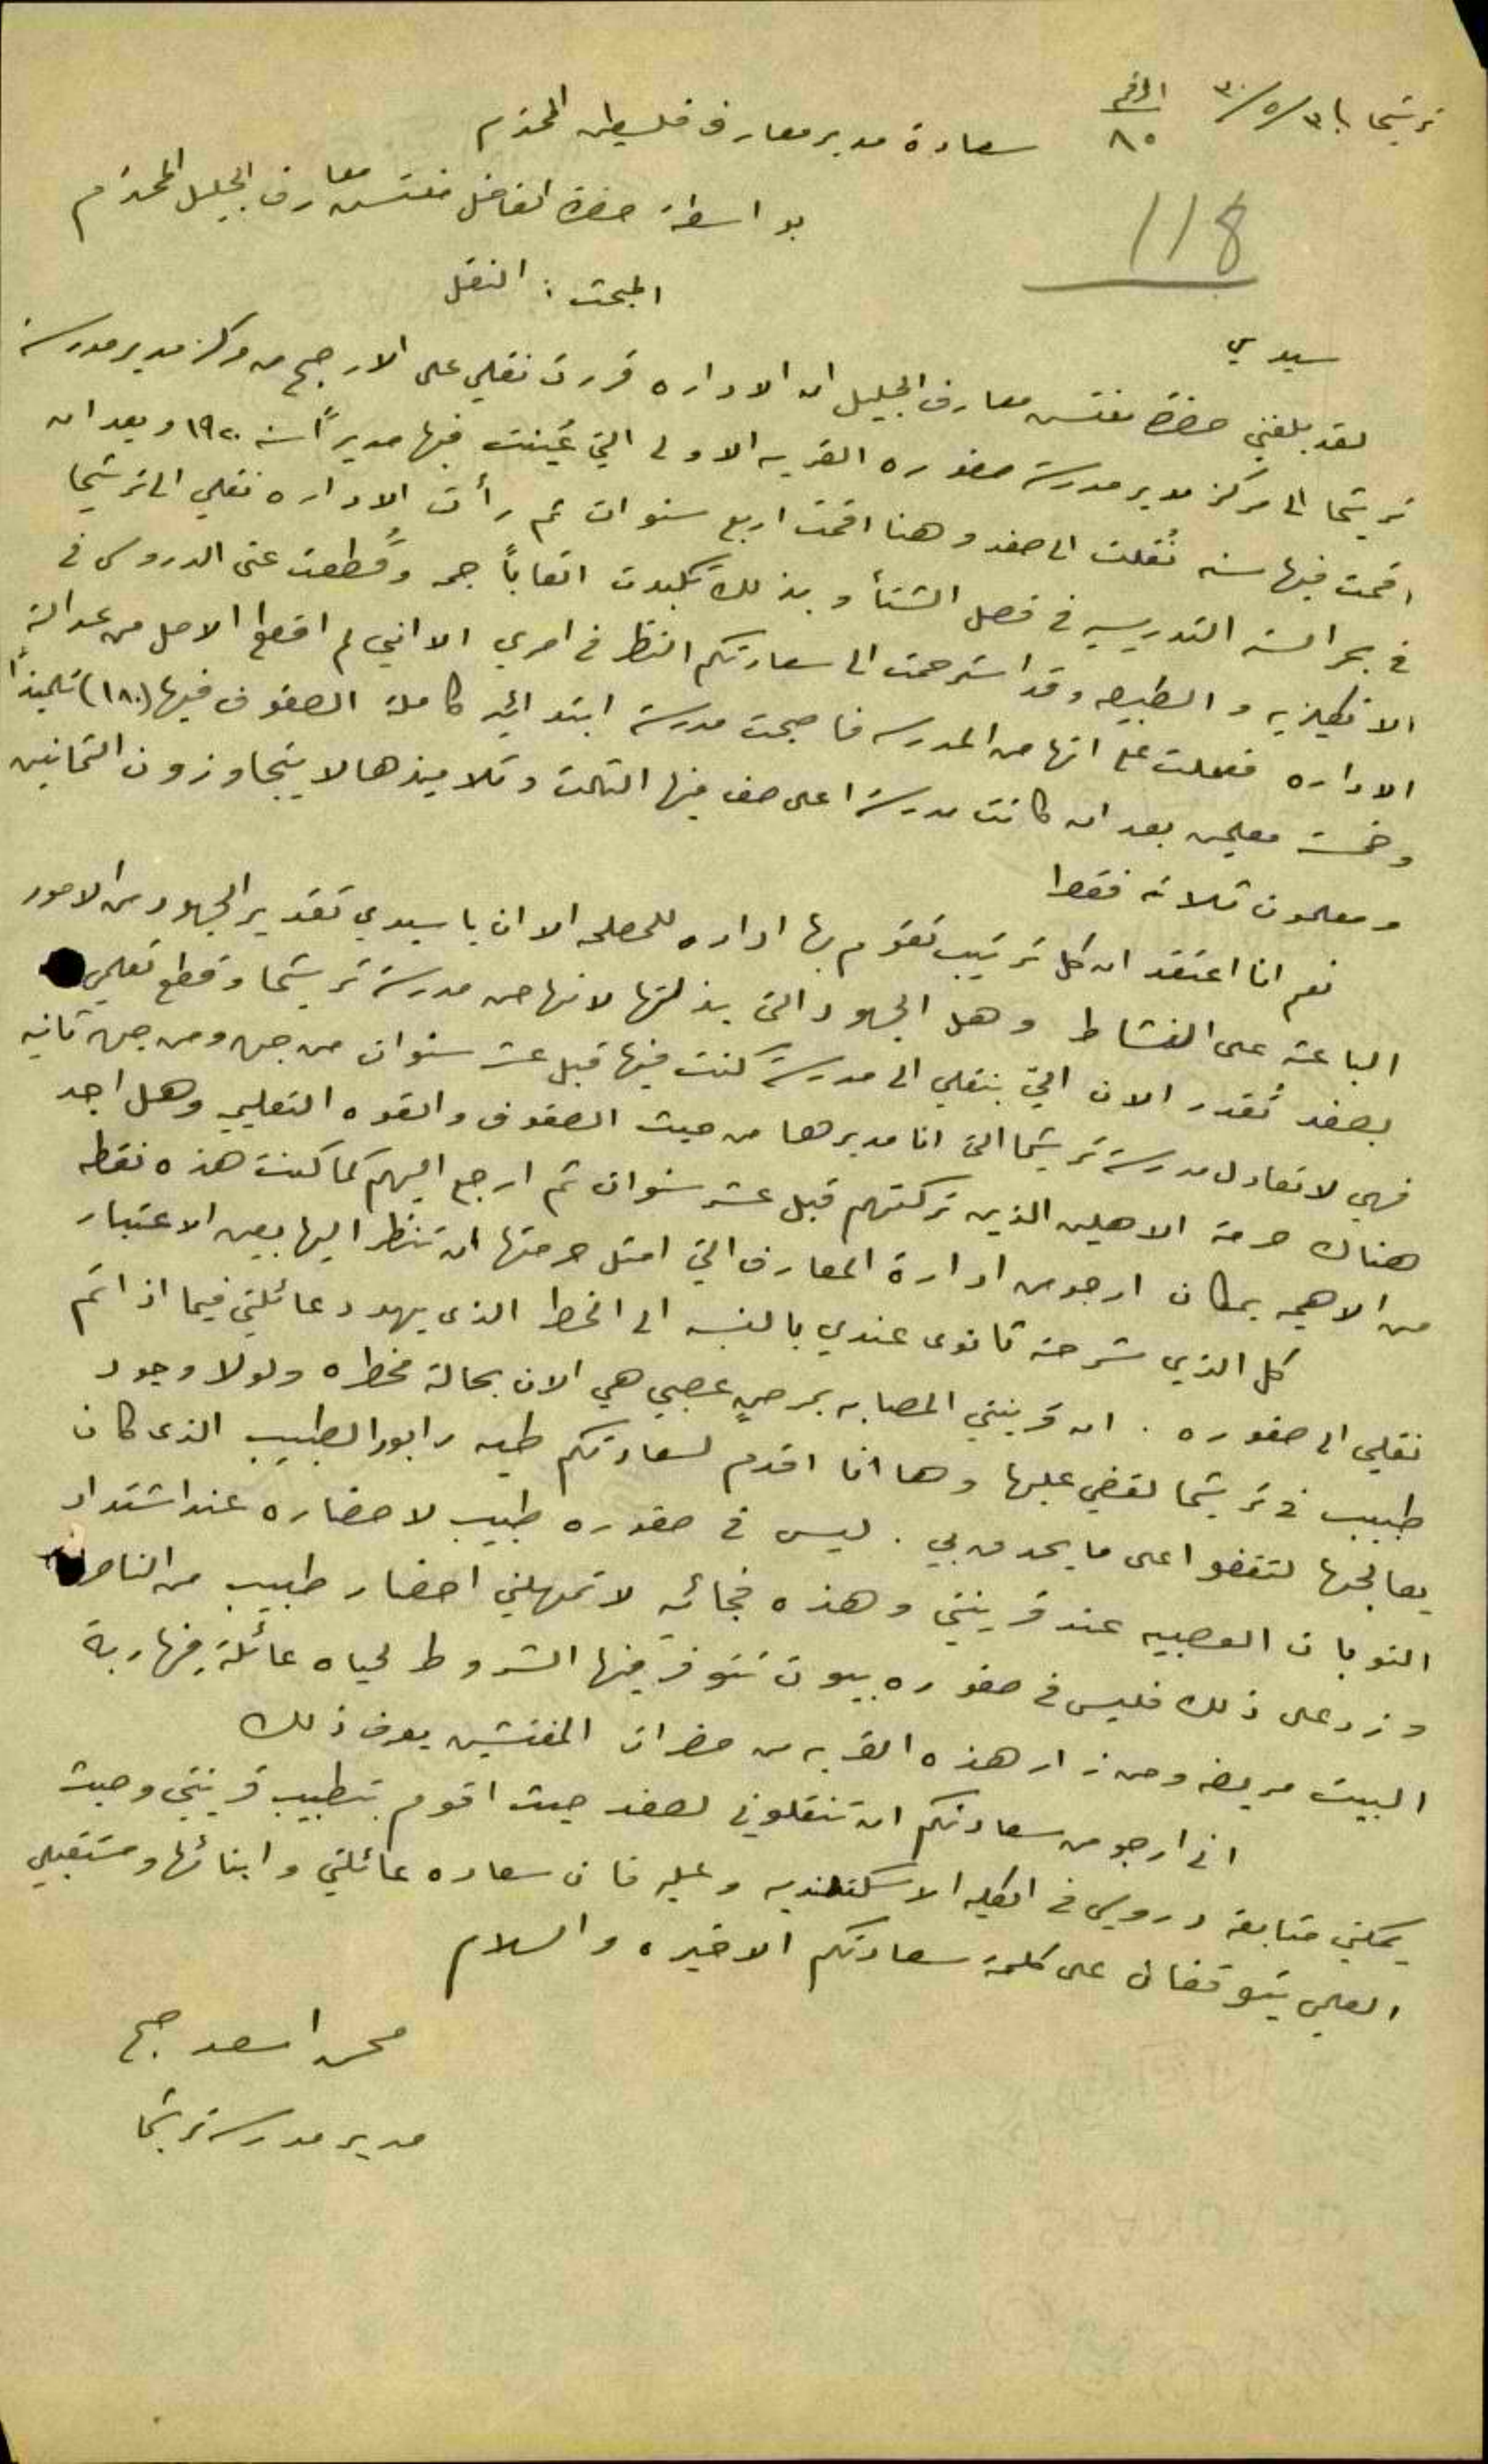 ترشيحا في ٣١/٥/٣٠ الرقم ٨٥
سعادة مدير معارف فلسطين المحترم
بواسطة حضرة الفاضل مفتش معارف الجليل المحترم
118
المبحث : النقل
سيدي
لقد بلغني حضرة مفتش معارف الجليل ان الاداره قررت نقلي على الارجح من مركز مدير مدرسة
ترشيحا الى مركز مدير مدرسة صفوره القريه الاولى التي عُينت فيها مديراً سنة ١٩٢٠ وبعد ان
اقمت فيها سنه نُقلت الى صفد وهنا اقمت اربع سنوات ثم رأت الاداره نقلي الى ترشيحا
في بحر السنه التدريسيه في فصل الشتأ وبذلك تكبدت اتعاباً جمه وقُطعت عني الدروس في
الانكليزيه والطبيعه وقد استرحمت الى سعادتكم النظر في امري الا اني لم اقطع الامل من عدالة
الاداره فعملت على انهاض المدرسه فاصبحت مدرسة ابتدائيه كاملة الصفوف فيها (١٨٠) تلميذاً
وخمسة معلمين بعد ان كانت مدرسة اعلى صف فيها الثالث وتلاميذها لا يتجاوزون الثمانين
ومعلمون ثلاثة فقط
نعم انا اعتقد ان كل ترتيب تقوم بها اداره للمصلحه الا ان يا سيدي تقدير الجهود من الامور
الباعثه على النشاط وهل الجهود التي بذلتها لانهاض مدرسة ترشيحا وقطع تعليمي
بصفد تُقدر الان التي بنقلي الى مدرسة كنت فيها قبل عشر سنوات من جهه ومن جهه ثانيه
فهي لا تعادل مدرسة ترشيحا التي انا مديرها من حيث الصفوف والقوه التعليميه وهل اجد
هناك حرمة الاهلين الذين تركتهم قبل عشر سنوات ثم ارجع اليهم كما كنت هذه نقطه
من الاهميه بمكان ارجو من ادارة المعارف التي امثل حرمتها ان تنظر اليها بعين الاعتبار
كل الذي شرحته ثانوى عندي بالنسبه الى الخطر الذى يهدد عائلتي فيما اذا تم
نقلي الى صفوره . ان قرينتي المصابه بمرضٍ عصبي هي الان بحالة مخطره ولولا وجود
طبيب في ترشيحا لقضي عليها وها انا اقدم لسعادتكم طيه رابور الطبيب الذى كان
يعالجها لتقفوا على ما يحدق بي . ليس في صفوره طبيب لاحضاره عند اشتداد
النوبات العصبيه عند قرينتي وهذه فجائيه لا تمهلني احضار طبيب من الناصرة
وزد على ذلك فليس في صفوره بيوت تتوفر فيها الشروط لحياه عائلة فيها ربة
البيت مريضه ومن زار هذه القريه من حضرات المفتشين يعرف ذلك
اني ارجو من سعادتكم ان تنقلوني لصفد حيث اقوم بتطبيب قرينتي وحيث
يمكني متابعة دروسي في الكليه الاسكتلنديه وعليه فان سعاده عائلتي وابنائها ومستقبلي
العلمي يتوقفان على كلمة سعادتكم الاخيره والسلام
اسعد
مدير مدرسة ترشيحا